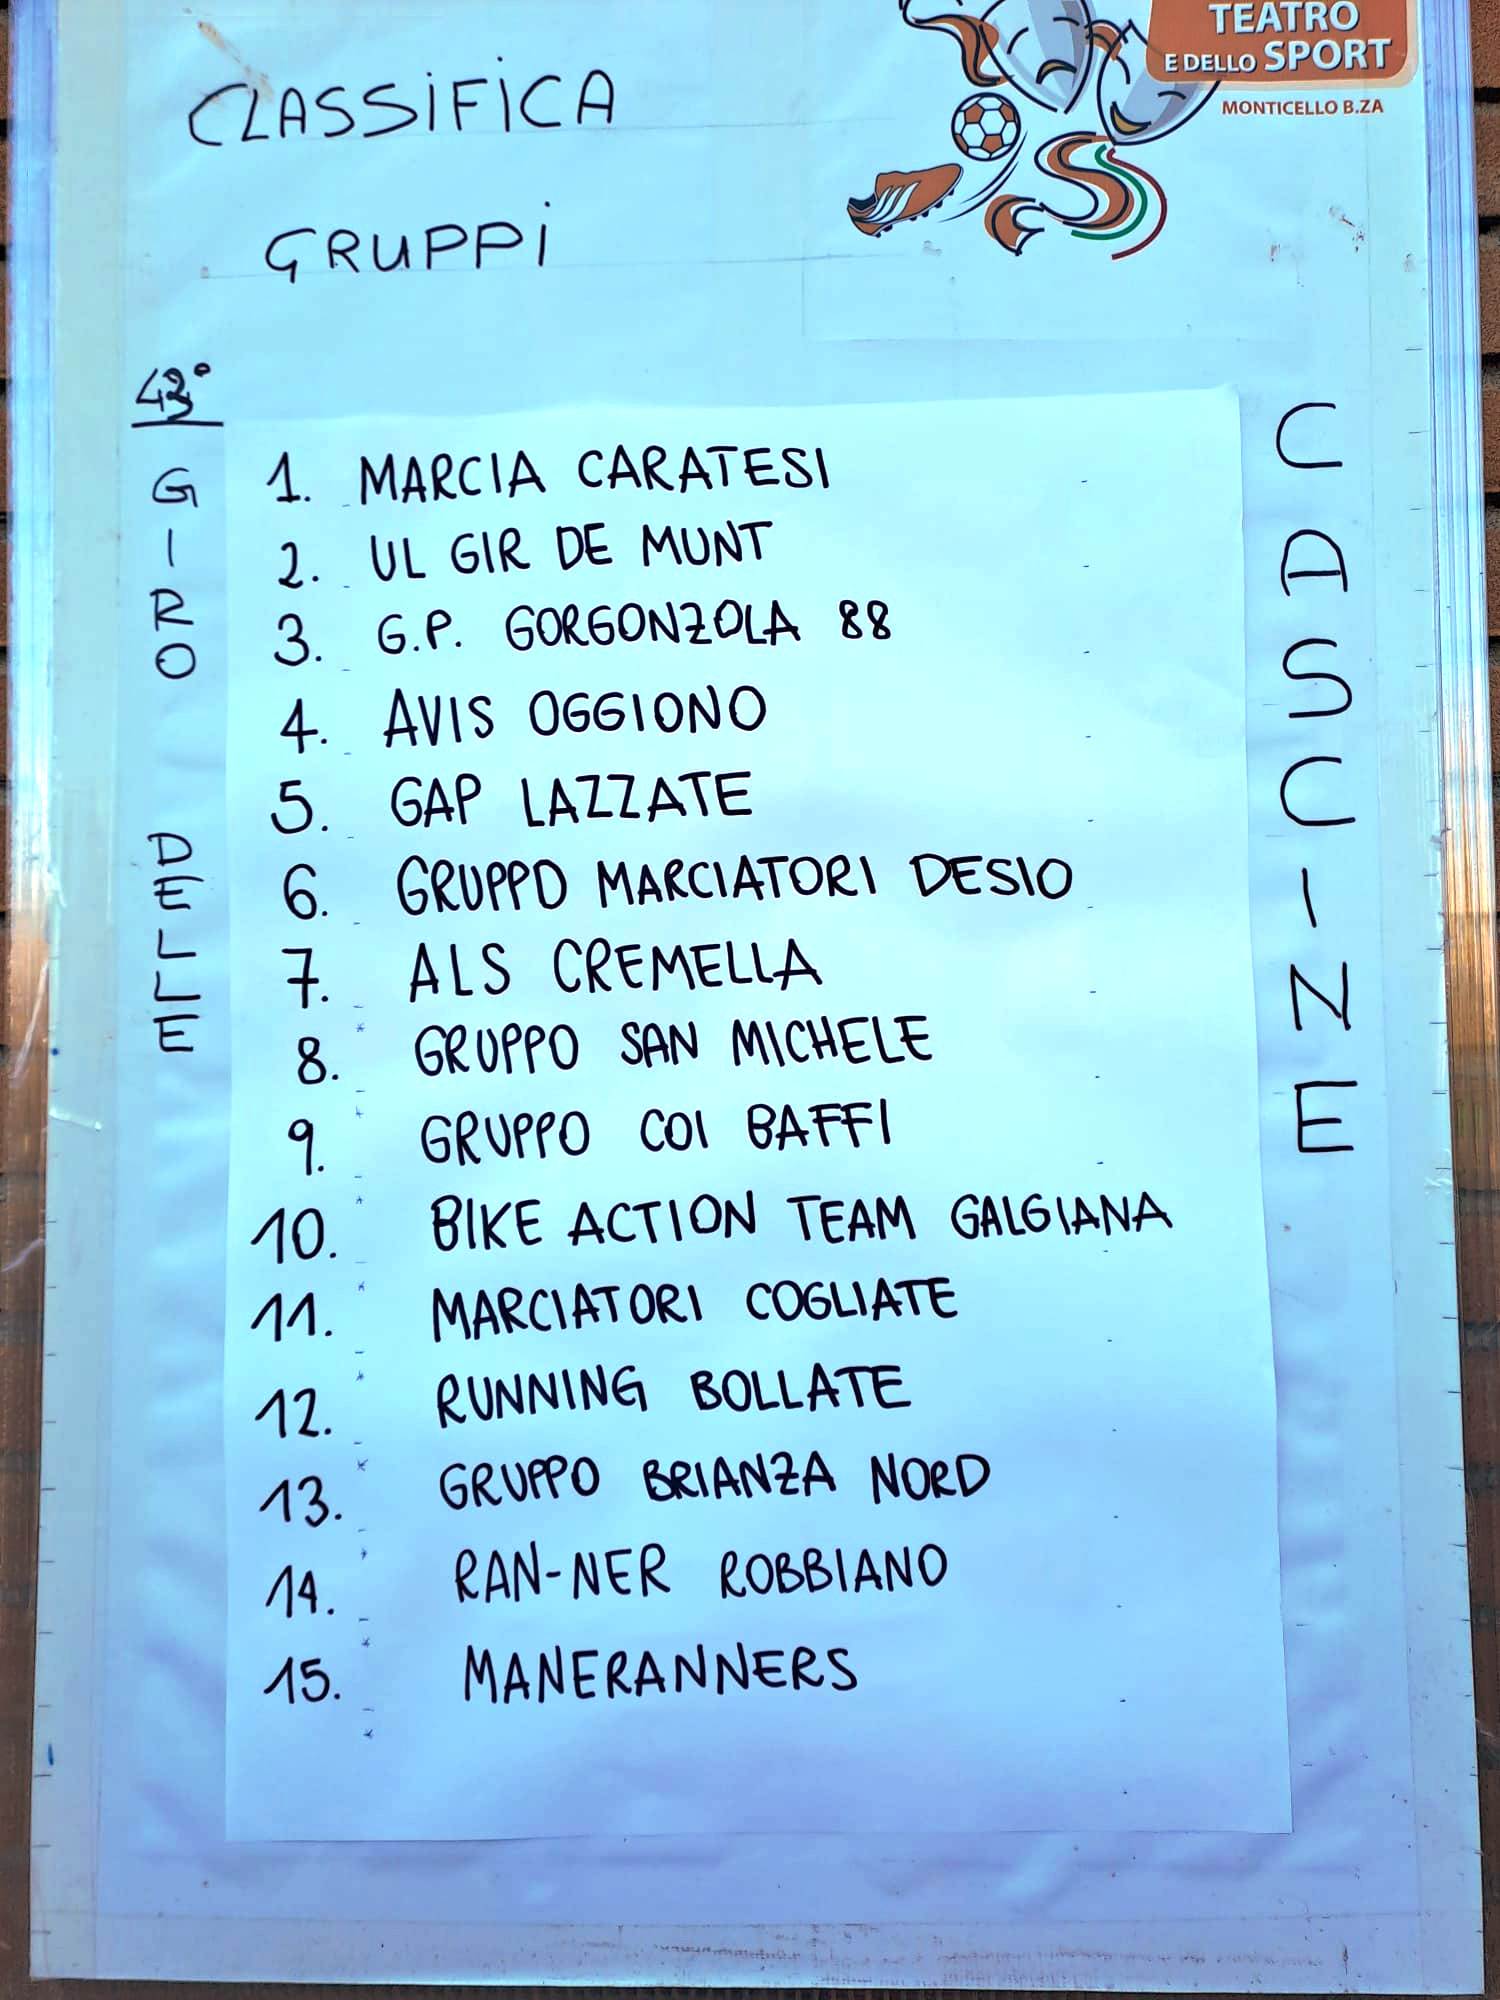 TEATRO
E DELLO SPORT
MONTICELLO B.ZA
CLASSIFICA
GRUPPI
GIRO DELLE
CASCINE
1. MARCIA CARATESI
2. UL GIR DE MUNT
3. G.P. GORGONZOLA 88
4. AVIS OGGIONO
5. GAP LAZZATE
6. GRUPPO MARCIATORI DESIO
7. ALS CREMELLA
8. GRUPPO SAN MICHELE
9. GRUPPO COI BAFFI
10. BIKE ACTION TEAM GALGIANA
11. MARCIATORI COGLIATE
12. RUNNING BOLLATE
13. GRUPPO BRIANZA NORD
14. RAN-NER ROBBIANO
15. MANERANNERS